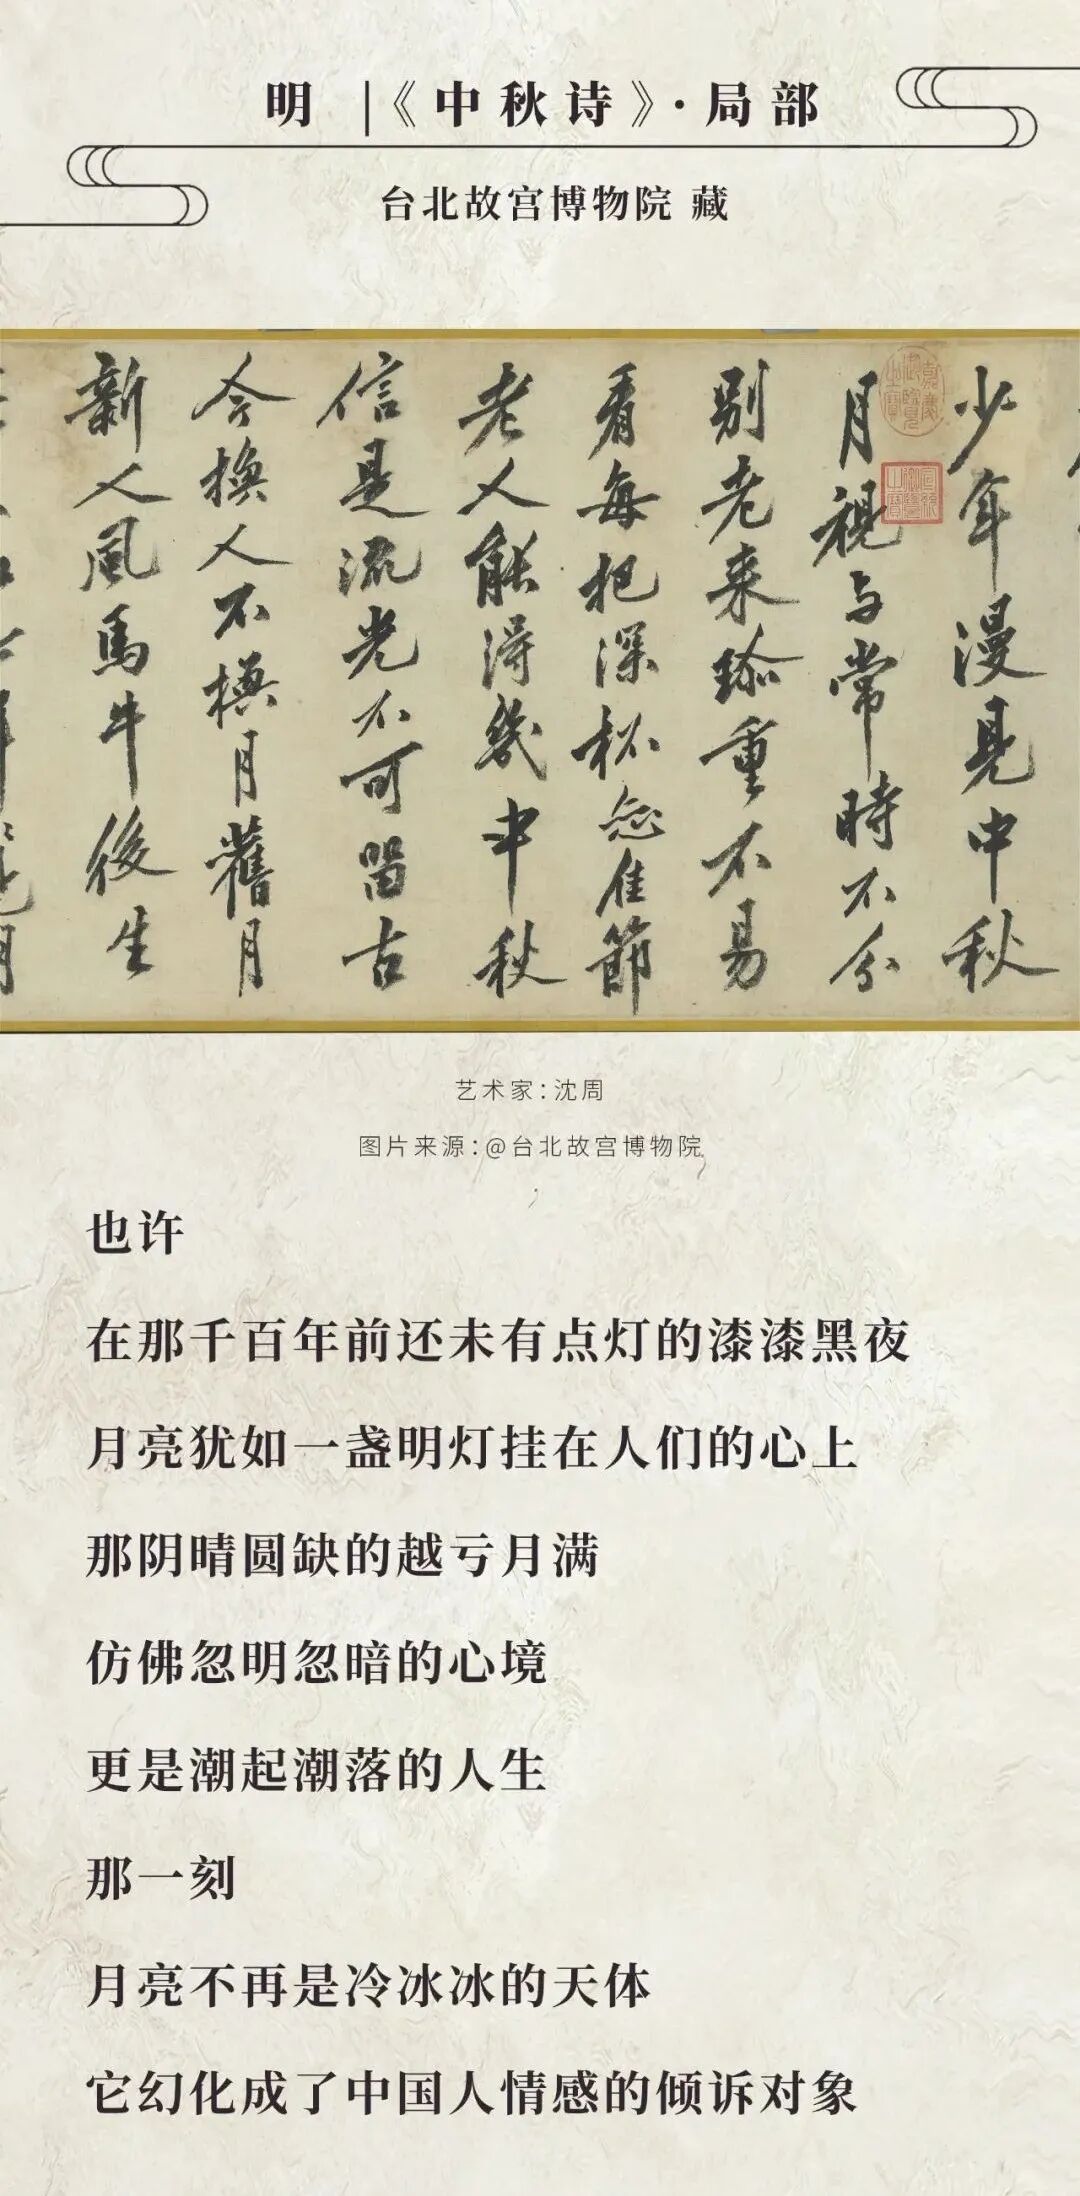 明 |《中秋诗》·局部
台北故宫博物院 藏
少年漫見中秋
月視与常時不分
别老来珎重不易
看每把深杯惢佳節
老人能得幾中秋
信是流光不可留古
今換人不換月舊月
新人風馬牛後生
艺术家:沈周
图片来源:@台北故宫博物院
也许
在那千百年前还未有点灯的漆漆黑夜
月亮犹如一盏明灯挂在人们的心上
那阴晴圆缺的越亏月满
仿佛忽明忽暗的心境
更是潮起潮落的人生
那一刻
月亮不再是冷冰冰的天体
它幻化成了中国人情感的倾诉对象